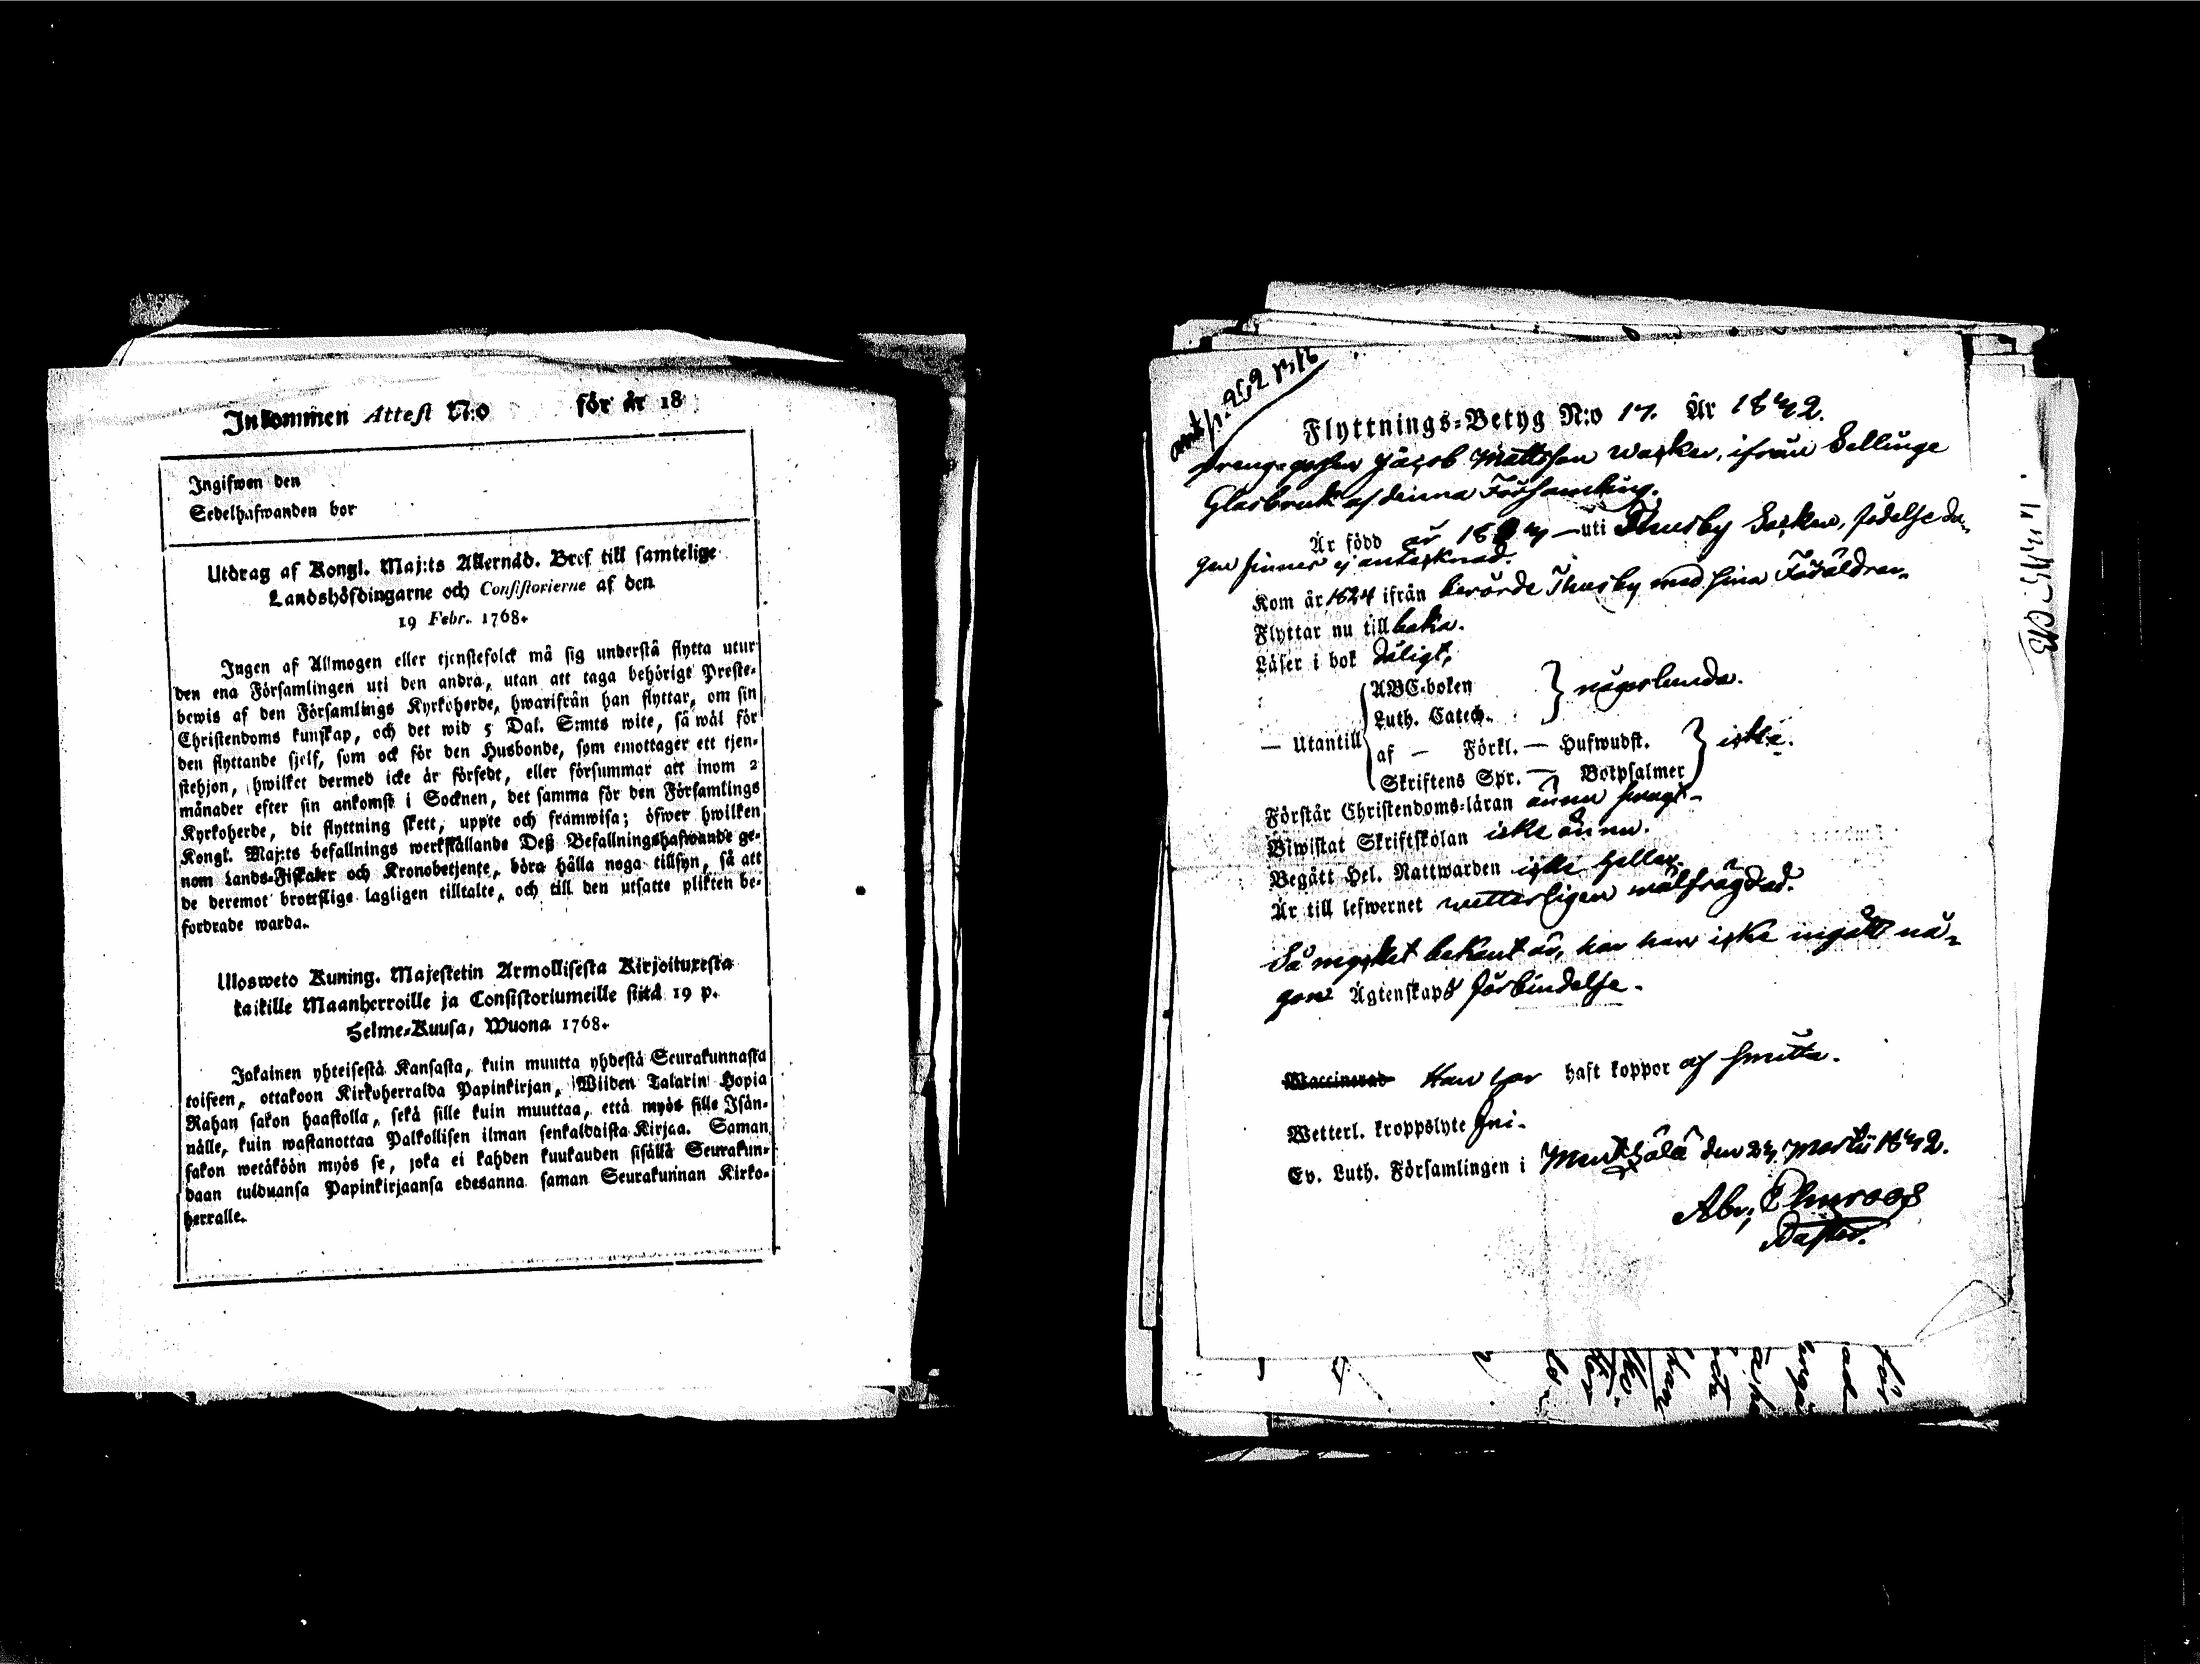 Inkommen Attest N:o för år 18
Ingifwen den
Sedelhafwanden bor
Utdrag af Kongl. Maj:ts Allernåd. Bref till samtelige
Landshöfdingarne och Consistorierne af den
19 Febr. 1768.
Ingen af Allmogen eller tjenstefolck må sig understå flytta utur
den ena Församlingen uti den andra, utan att taga behörigt Preste-
bewis af den Församlings Kyrkoherde, hwarifrån han flyttar, om sin
Christendoms kunskap, och det wid 5 Dal. S:mts wite, så wäl för
den flyttande sjelf, som ock för den Husbonde, som emottager ett tjen-
stehjon, hwilket dermed icke är försedt, eller försummar att inom 2
månader efter sin ankomst i Socknen, det samma för den Församlings
Kyrkoherde, dit flyttning skett, uppte och framwisa; öfwer hwilken
Kongl. Maj:ts befallnings werkställande Deß Befallningshafwande ge-
nom Lands-Fiskaler och Kronobetjente, böra hålla noga tillsyn, så att
de deremot brottslige lagligen tilltalte, och till den utsatte plikten be-
fordrade warda.
Ulosweto Kuning. Majestetin Armollisesta Kirjoituxesta
kaikille Maanherroille ja Consistoriumeille siitä 19 p.
Helme-Kuusa, Wuona 1768.
Jokainen yhteisestä Kansasta, kuin muutta yhdestä Seurakunnasta
toiseen, ottakoon Kirkoherralda Papinkirjan, Wiiden Talarin Hopia
Rahan sakon haastolla, sekä sille kuin muuttaa, että myös sille Isän-
nälle, kuin wastanottaa Palkollisen ilman senkaldaista Kirjaa. Saman
sakon wetäköön myös se, joka ei kahden kuukauden sisällä Seurakun-
daan tulduansa Papinkirjaansa edesanna saman Seurakunnan Kirko-
herralle.
Flyttnings-Betyg N:o 17. År 1842.
Jacob Mattsson ifrån
Glasbruk af denna Församling.
Är född år 18 uti Thusby Socken, födelse da-
gen finnes ej antecknad.
Kom år 1824 ifrån berörde Thusby med sina Föräldrar.
Flyttar nu tillbaka.
Läser i bok dåligt,
— Utantill
ABC-boken
Luth. Catech. någorlunda.
af — Förkl. — Hufwudst.
Skriftens Spr. — Botpsalmer icke.
Förstår Christendoms-läran ännu swagt.
Biwistat Skriftskolan icke ännu.
Begått Hel. Nattwarden icke heller.
Är till lefwernet wetterligen wälfrägdad.
Så mycket bekant är, har han icke ingått nå-
gon Ägtenskaps förbindelse.
Waccinerad Han har haft koppor af smitta.
Wetterl. kroppslyte fri.
Ev. Luth. Församlingen i Mentzälä den 24 Martii 1842.